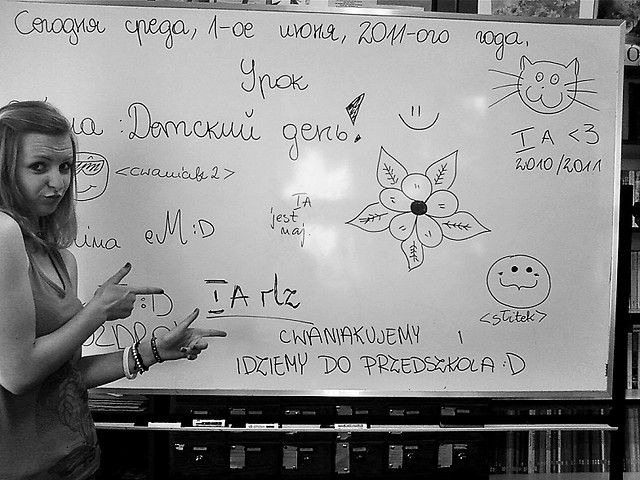 Сегодня среда, 1-ое июня, 2011-ого года.
Урок
:Детский день!
<cwaniak 2>
I A <3
2010/2011
IA
jest
maj.
eM :D
:D
I A rlz
<stitek>
CWANIAKUJEMY
IDZIEMY DO PRZEDSZKOLA :D